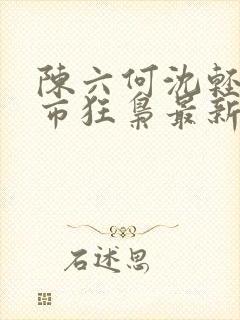 陳六何沈輕
市狂梟最新
石述思